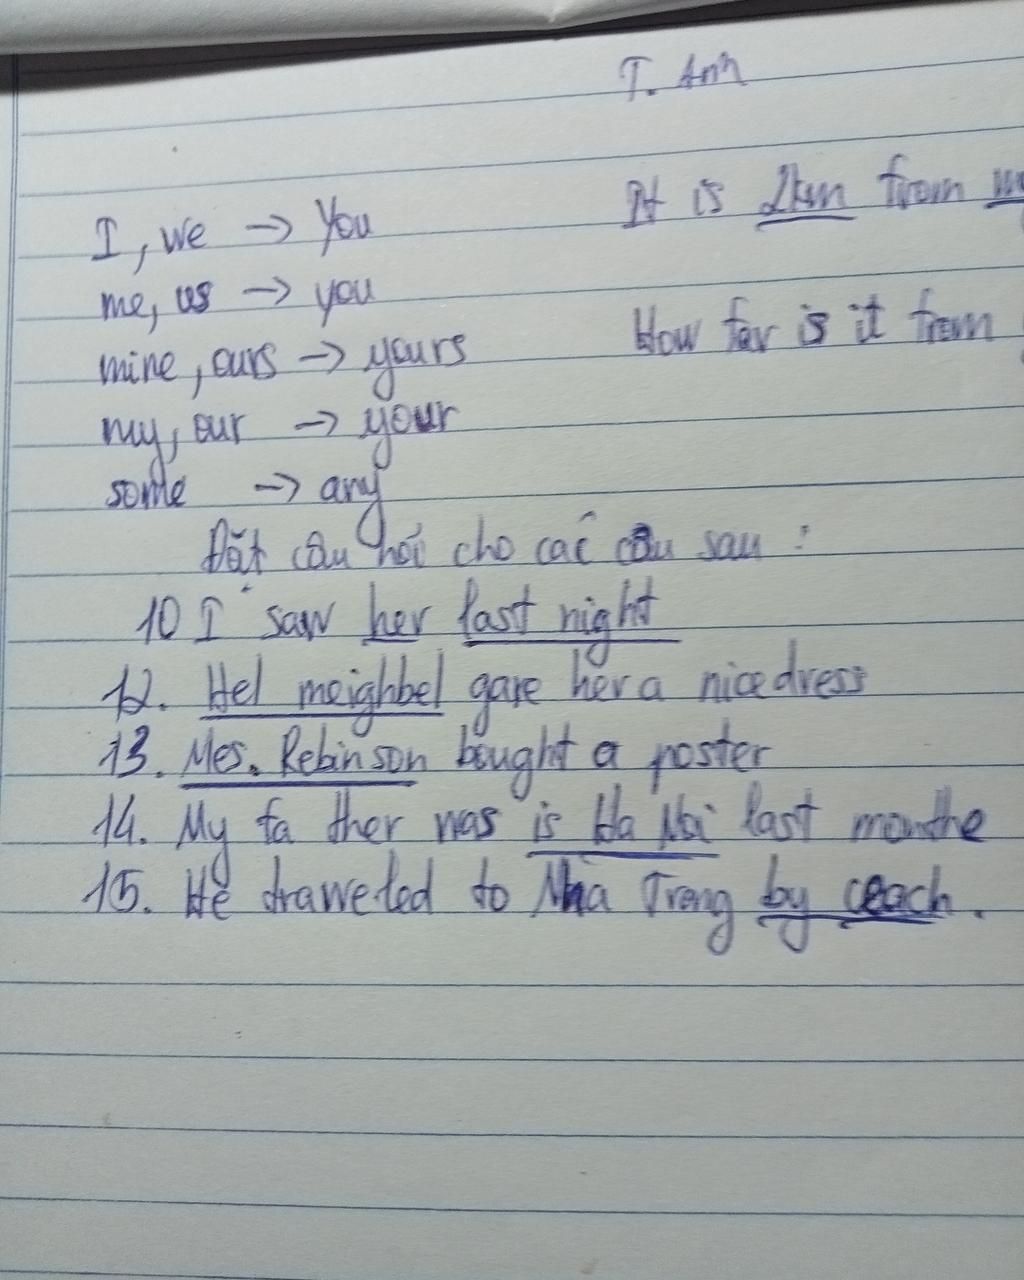 T. Anh
I, we -> You
It is 2km from
me, us -> you
How far is it from
mine, ours -> yours
my, our -> your
some -> any
Đặt câu hỏi cho các câu sau :
10 I saw her last night
12. Hel meighbel gave her a nice dress
13. Mes. Rebinson bought a poster
14. My fa ther was is Ha Noi last monthe
15. He draweled to Nha Trang by coach.